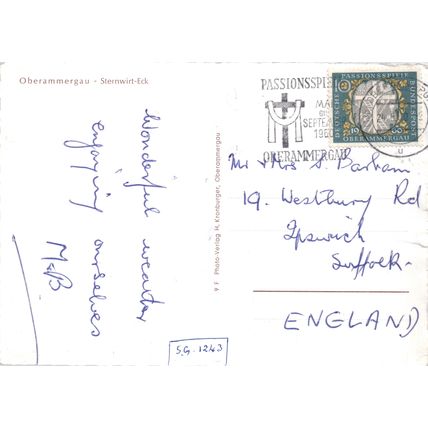 Oberammergau - Sternwirt-Eck
Wonderful weather
enjoying ourselves
M & B
9 F Photo-Verlag H. Kronburger, Oberammergau
S.G. 1243
PASSIONSSPIELE
MAI
BIS
SEPTEMBER
1960
OBERAMMERGAU
PASSIONSSPIELE
10
DEUTSCHE
BUNDESPOST
19 60
OBERAMMERGAU
Mr & Mrs S. Barham
19. Westbury Rd
Ipswich
Suffolk-
ENGLAND